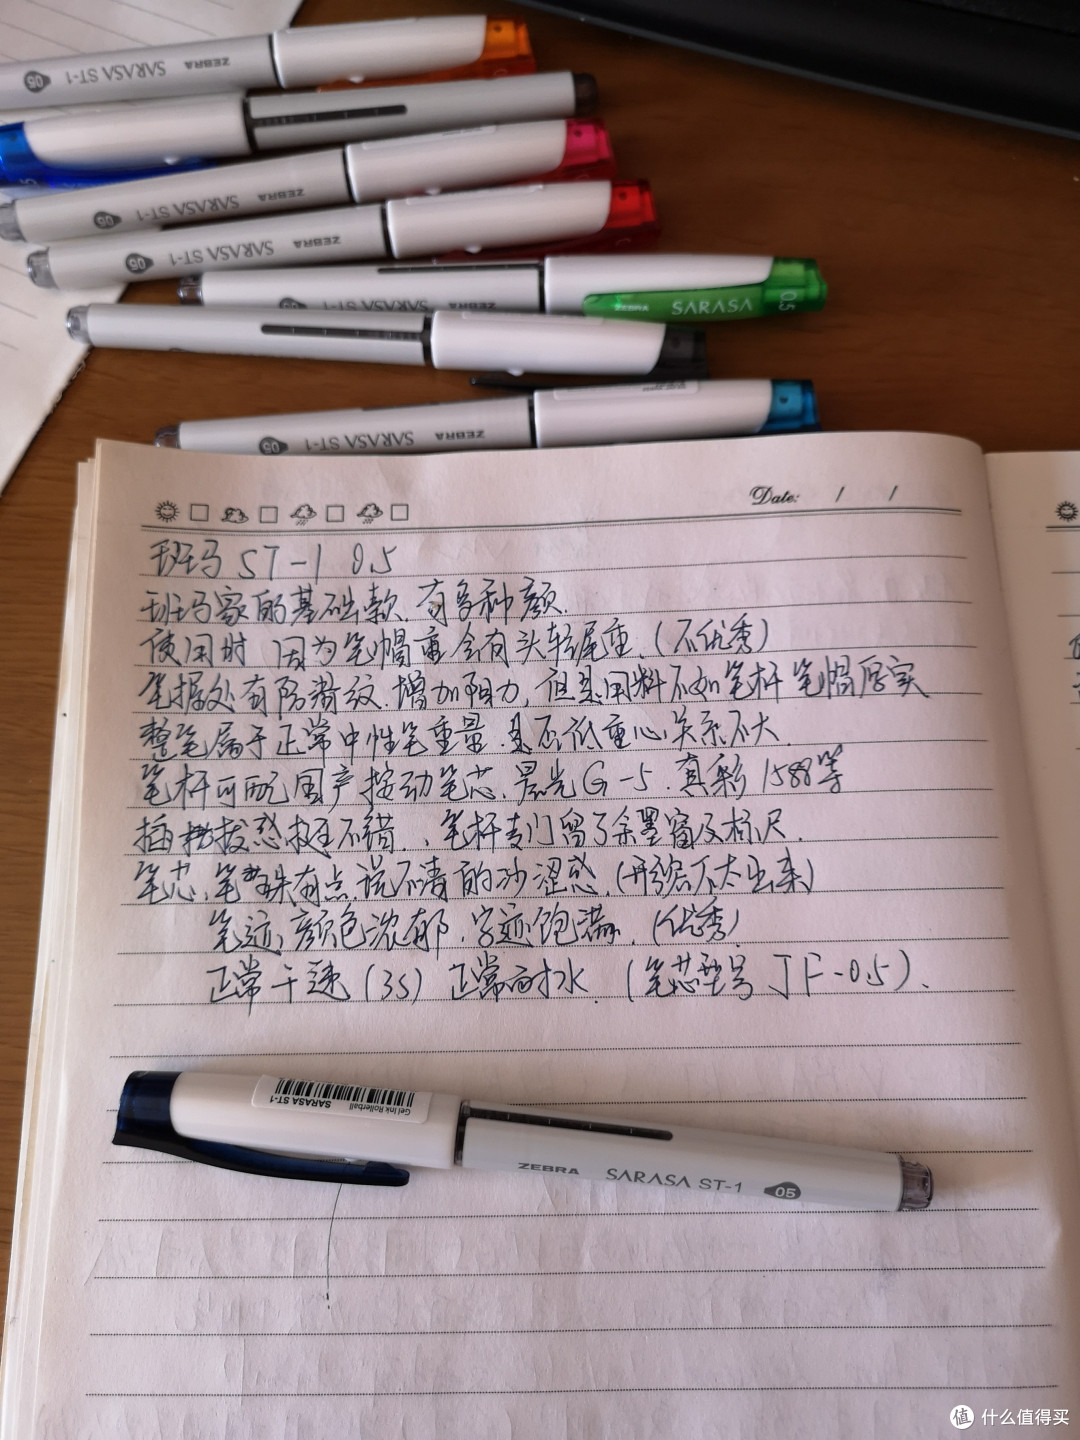 05 SARASA ST-1 ZEBRA
05 SARASA ST-1 ZEBRA
05 SARASA ST-1 ZEBRA
05 SARASA ST-1
SARASA 0.5
05 SARASA ST-1 ZEBRA
Date: / /
斑马 ST-1 0.5
斑马家的基础款.有多种颜.
使用时 因为笔帽重 会有头轻尾重.(不优秀)
笔握处有防滑纹.增加阻力,但是用料不如笔杆笔帽厚实
整笔属于正常中性笔重量.是否低重心关系不大.
笔杆可配国产按动笔芯.晨光G-5.真彩1588等
插拔感挺不错.、笔杆专门留了余墨窗及标尺.
笔芯、笔珠有点说不清的沙涩感.(形容不太出来)
笔迹,颜色浓郁.字迹饱满.(优秀)
正常干速(3S) 正常耐水.(笔芯型号 JF-0.5).
Gel Ink Rollerball
SARASA ST-1
ZEBRA SARASA ST-1 05
值 什么值得买